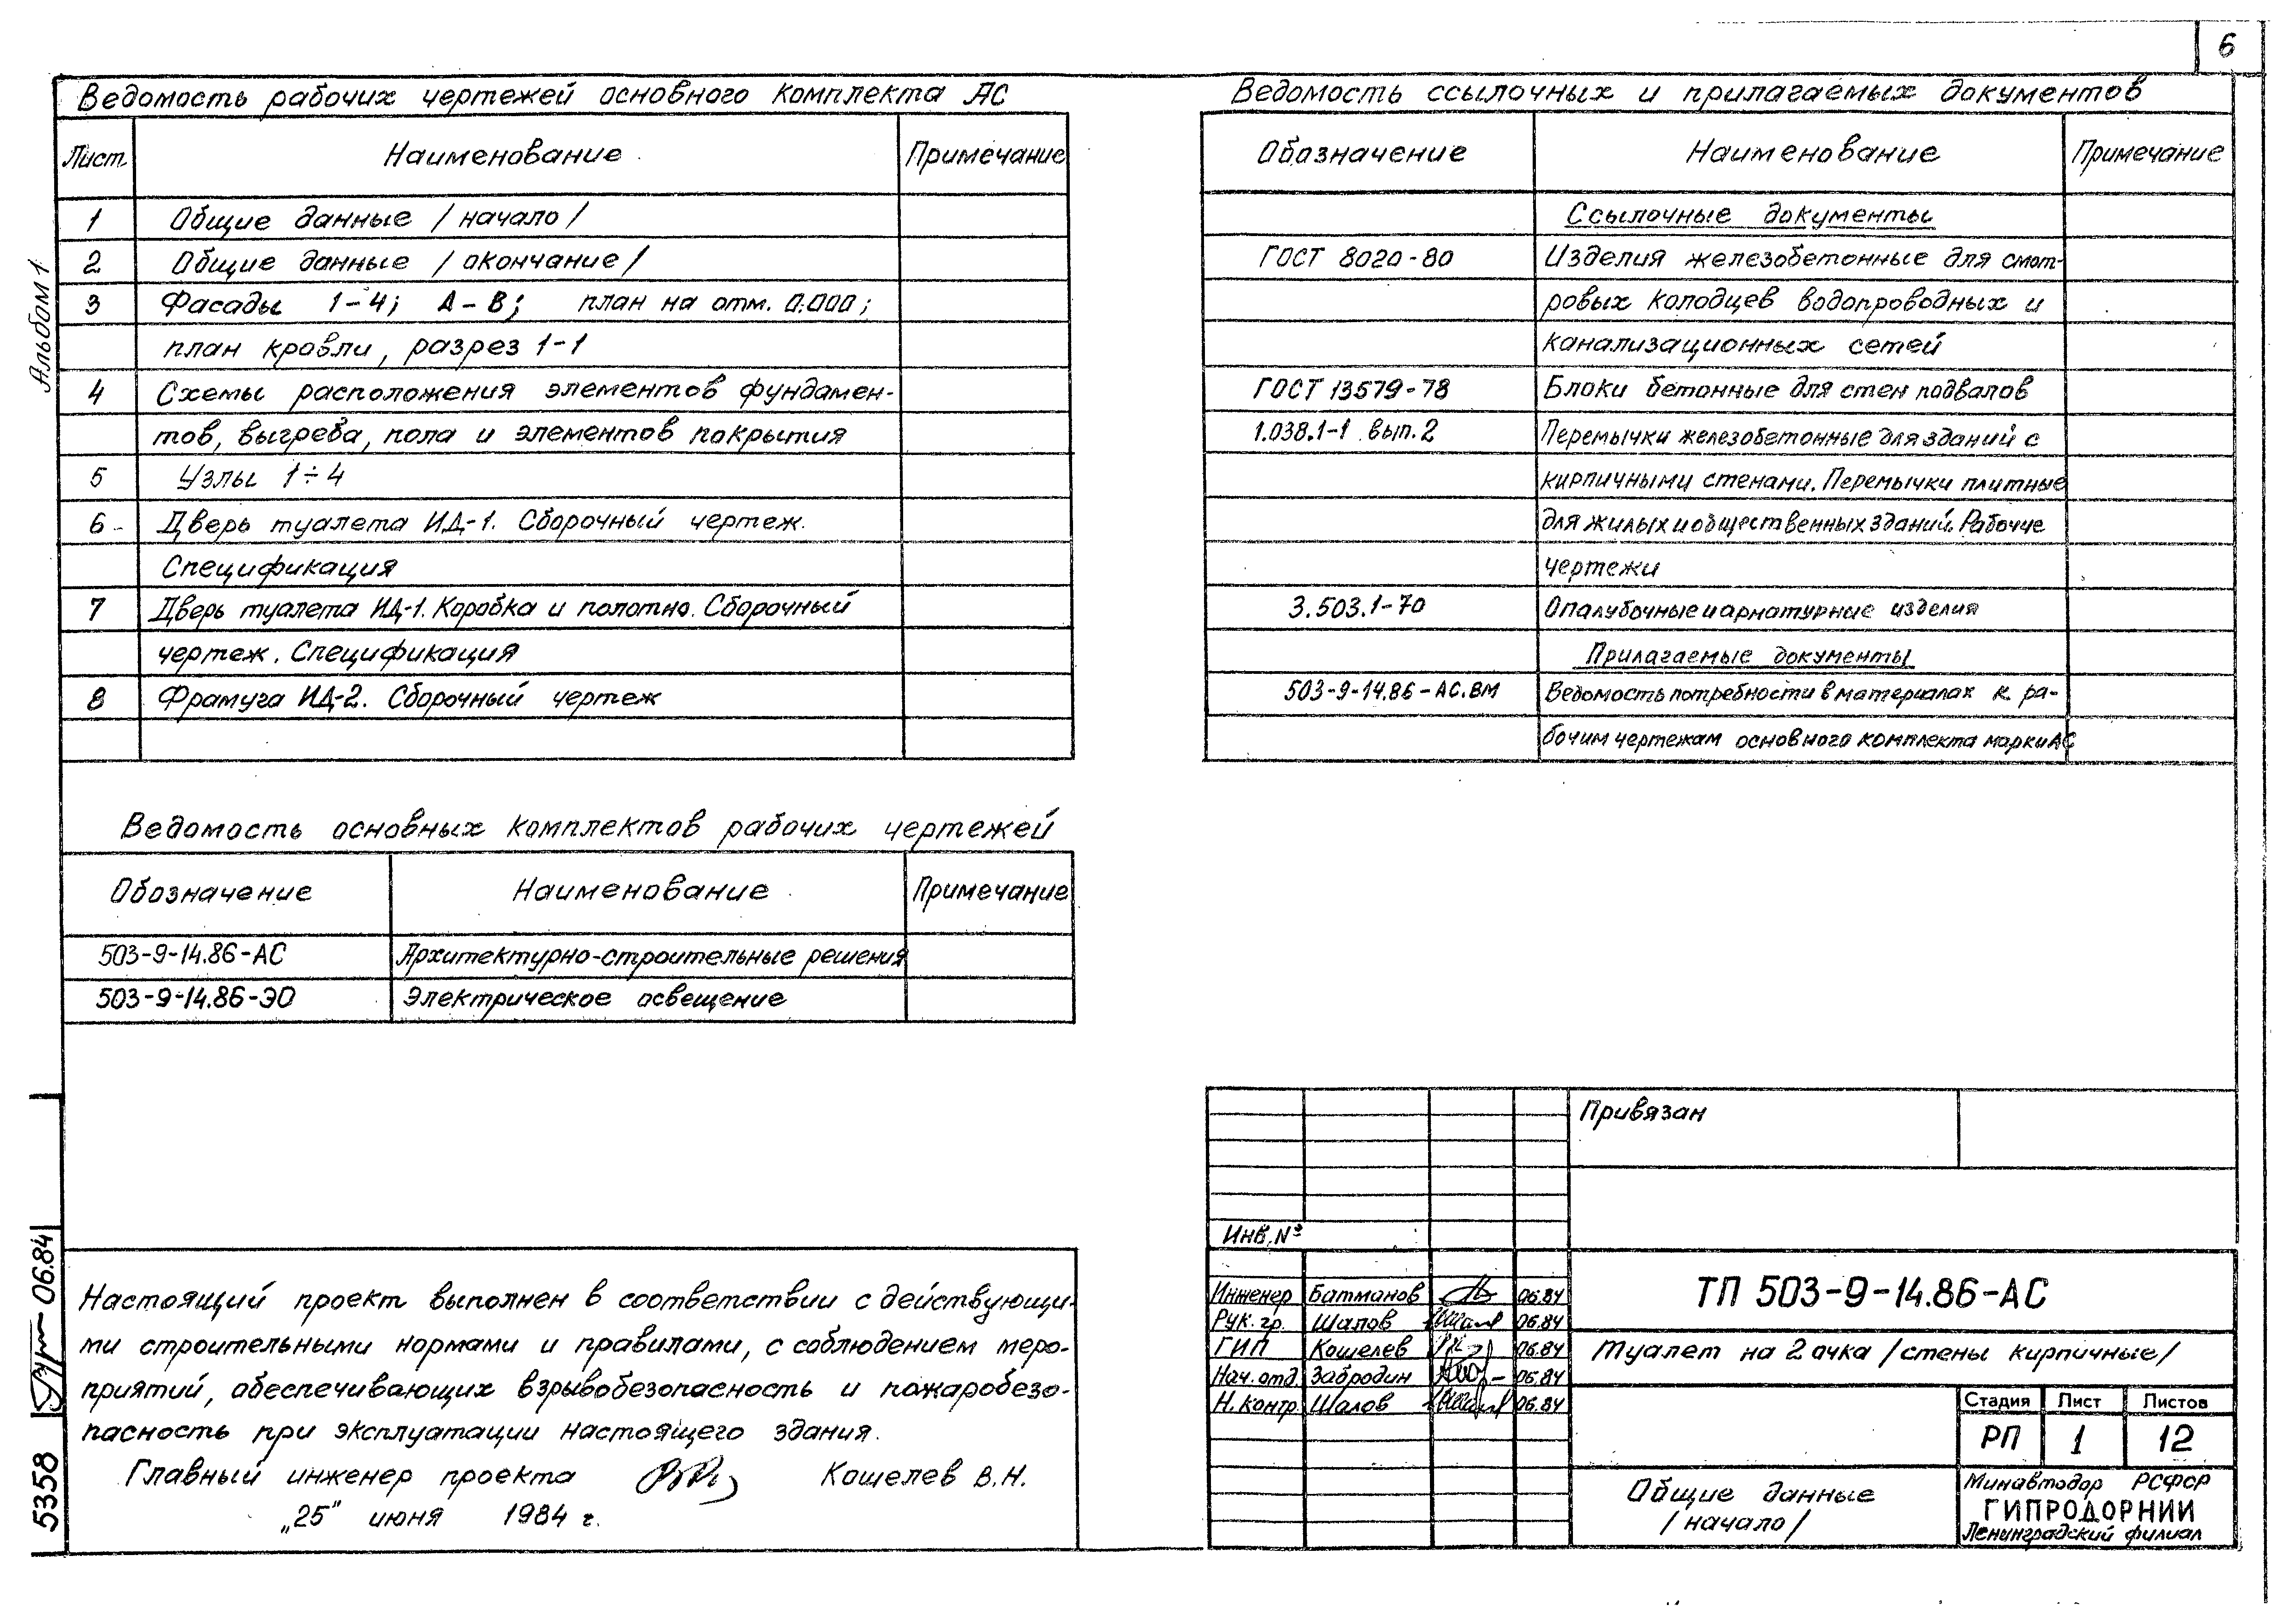 6
Альбом 1
Ведомость рабочих чертежей основного комплекта АС
Лист Наименование Примечание
1 Общие данные /начало/
2 Общие данные /окончание/
3 Фасады 1-4; А-В; план на отм. 0.000;
план кровли, разрез 1-1
4 Схемы расположения элементов фундамен-
тов, выгреба, пола и элементов покрытия
5 Узлы 1÷4
6 Дверь туалета ИД-1. Сборочный чертеж.
Спецификация
7 Дверь туалета ИД-1. Коробка и полотно. Сборочный
чертеж. Спецификация
8 Фрамуга ИД-2. Сборочный чертеж
Ведомость основных комплектов рабочих чертежей
Обозначение Наименование Примечание
503-9-14.86-АС Архитектурно-строительные решения
503-9-14.86-ЭО Электрическое освещение
Настоящий проект выполнен в соответствии с действующи-
ми строительными нормами и правилами, с соблюдением меро-
приятий, обеспечивающих взрывобезопасность и пожаробезо-
пасность при эксплуатации настоящего здания.
Главный инженер проекта Кошелев В.Н.
„25" июня 1984 г.
5358 06.84
Ведомость ссылочных и прилагаемых документов
Обозначение Наименование Примечание
Ссылочные документы
ГОСТ 8020-80 Изделия железобетонные для смот-
ровых колодцев водопроводных и
канализационных сетей
ГОСТ 13579-78 Блоки бетонные для стен подвалов
1.038.1-1 вып. 2 Перемычки железобетонные для зданий с
кирпичными стенами. Перемычки плитные
для жилых и общественных зданий. Рабочие
чертежи
3.503.1-70 Опалубочные и арматурные изделия
Прилагаемые документы
503-9-14.86-АС.ВМ Ведомость потребности в материалах к ра-
бочим чертежам основного комплекта марки АС
Привязан
Инв. №
Инженер Батманов 06.84
Рук. гр. Шапов 06.84
ГИП Кошелев 06.84
Нач. отд. Забродин 06.84
Н. контр. Шапов 06.84
ТП 503-9-14.86-АС
Туалет на 2 очка /стены кирпичные/
Стадия Лист Листов
РП 1 12
Общие данные
/начало/
Минавтодор РСФСР
ГИПРОДОРНИИ
Ленинградский филиал